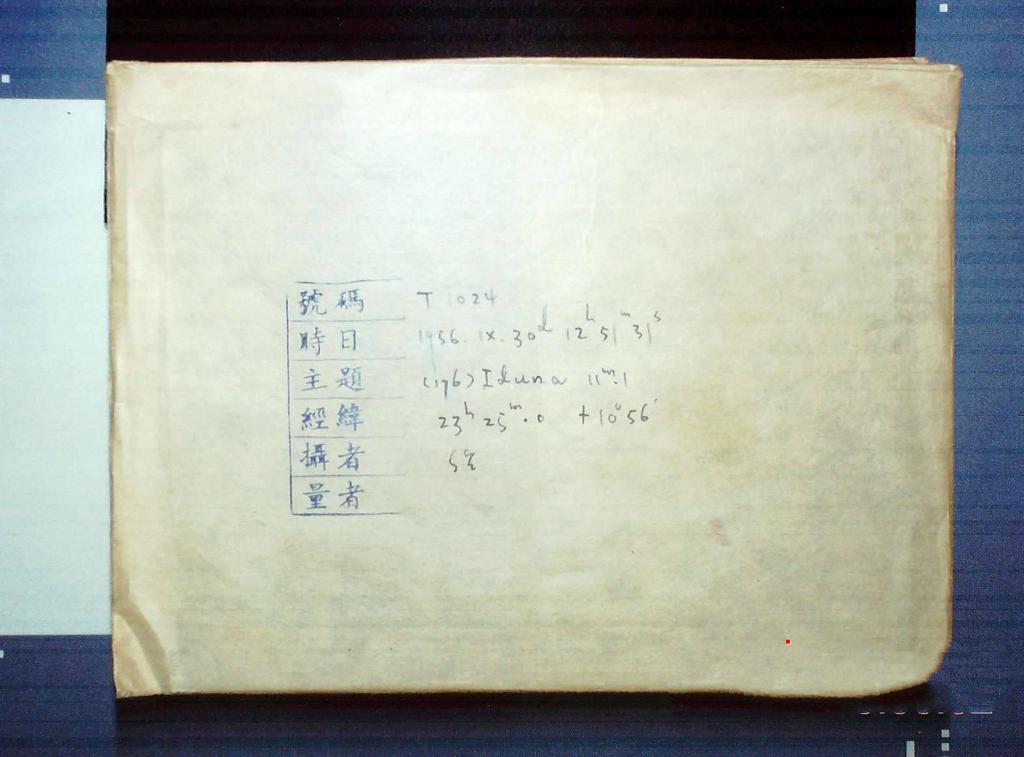 號碼 T 1024
時日 1956. IX. 30ᵈ 12ʰ 51ᵐ 31ˢ
主題 (176) Iduna 11ᵐ.1
經緯 23ʰ 25ᵐ.0 +10°56'
攝者
量者